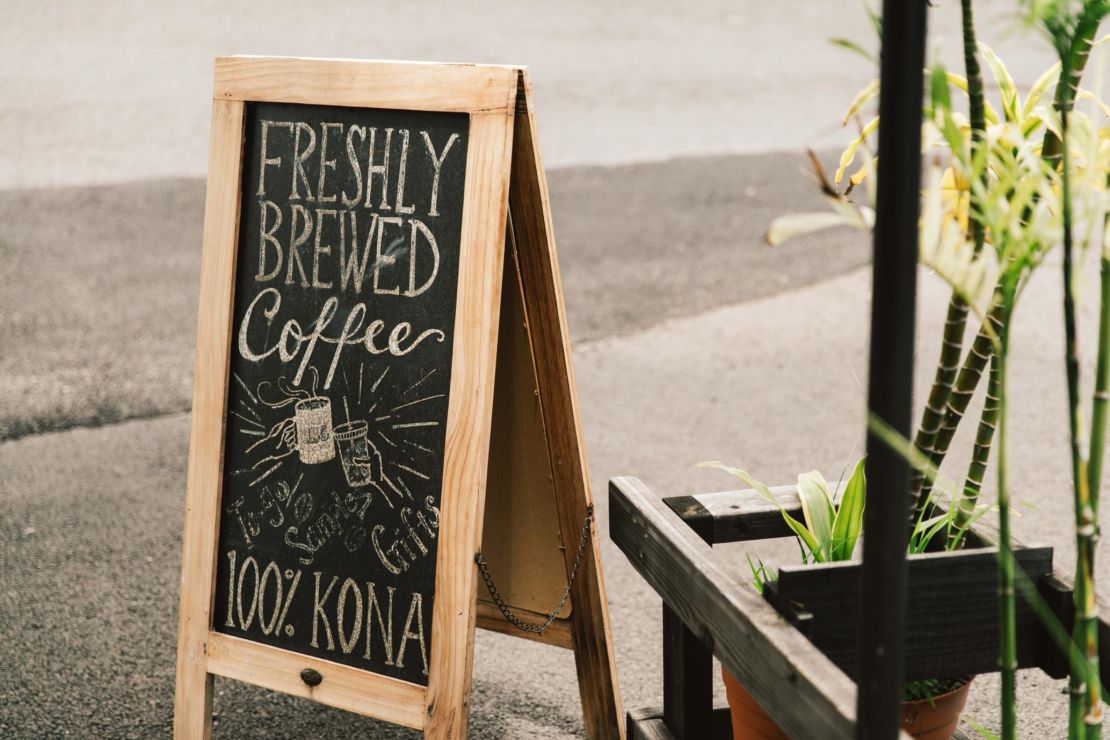 FRESHLY
BREWED
Coffee
To-go Samples Gifts
100% KONA